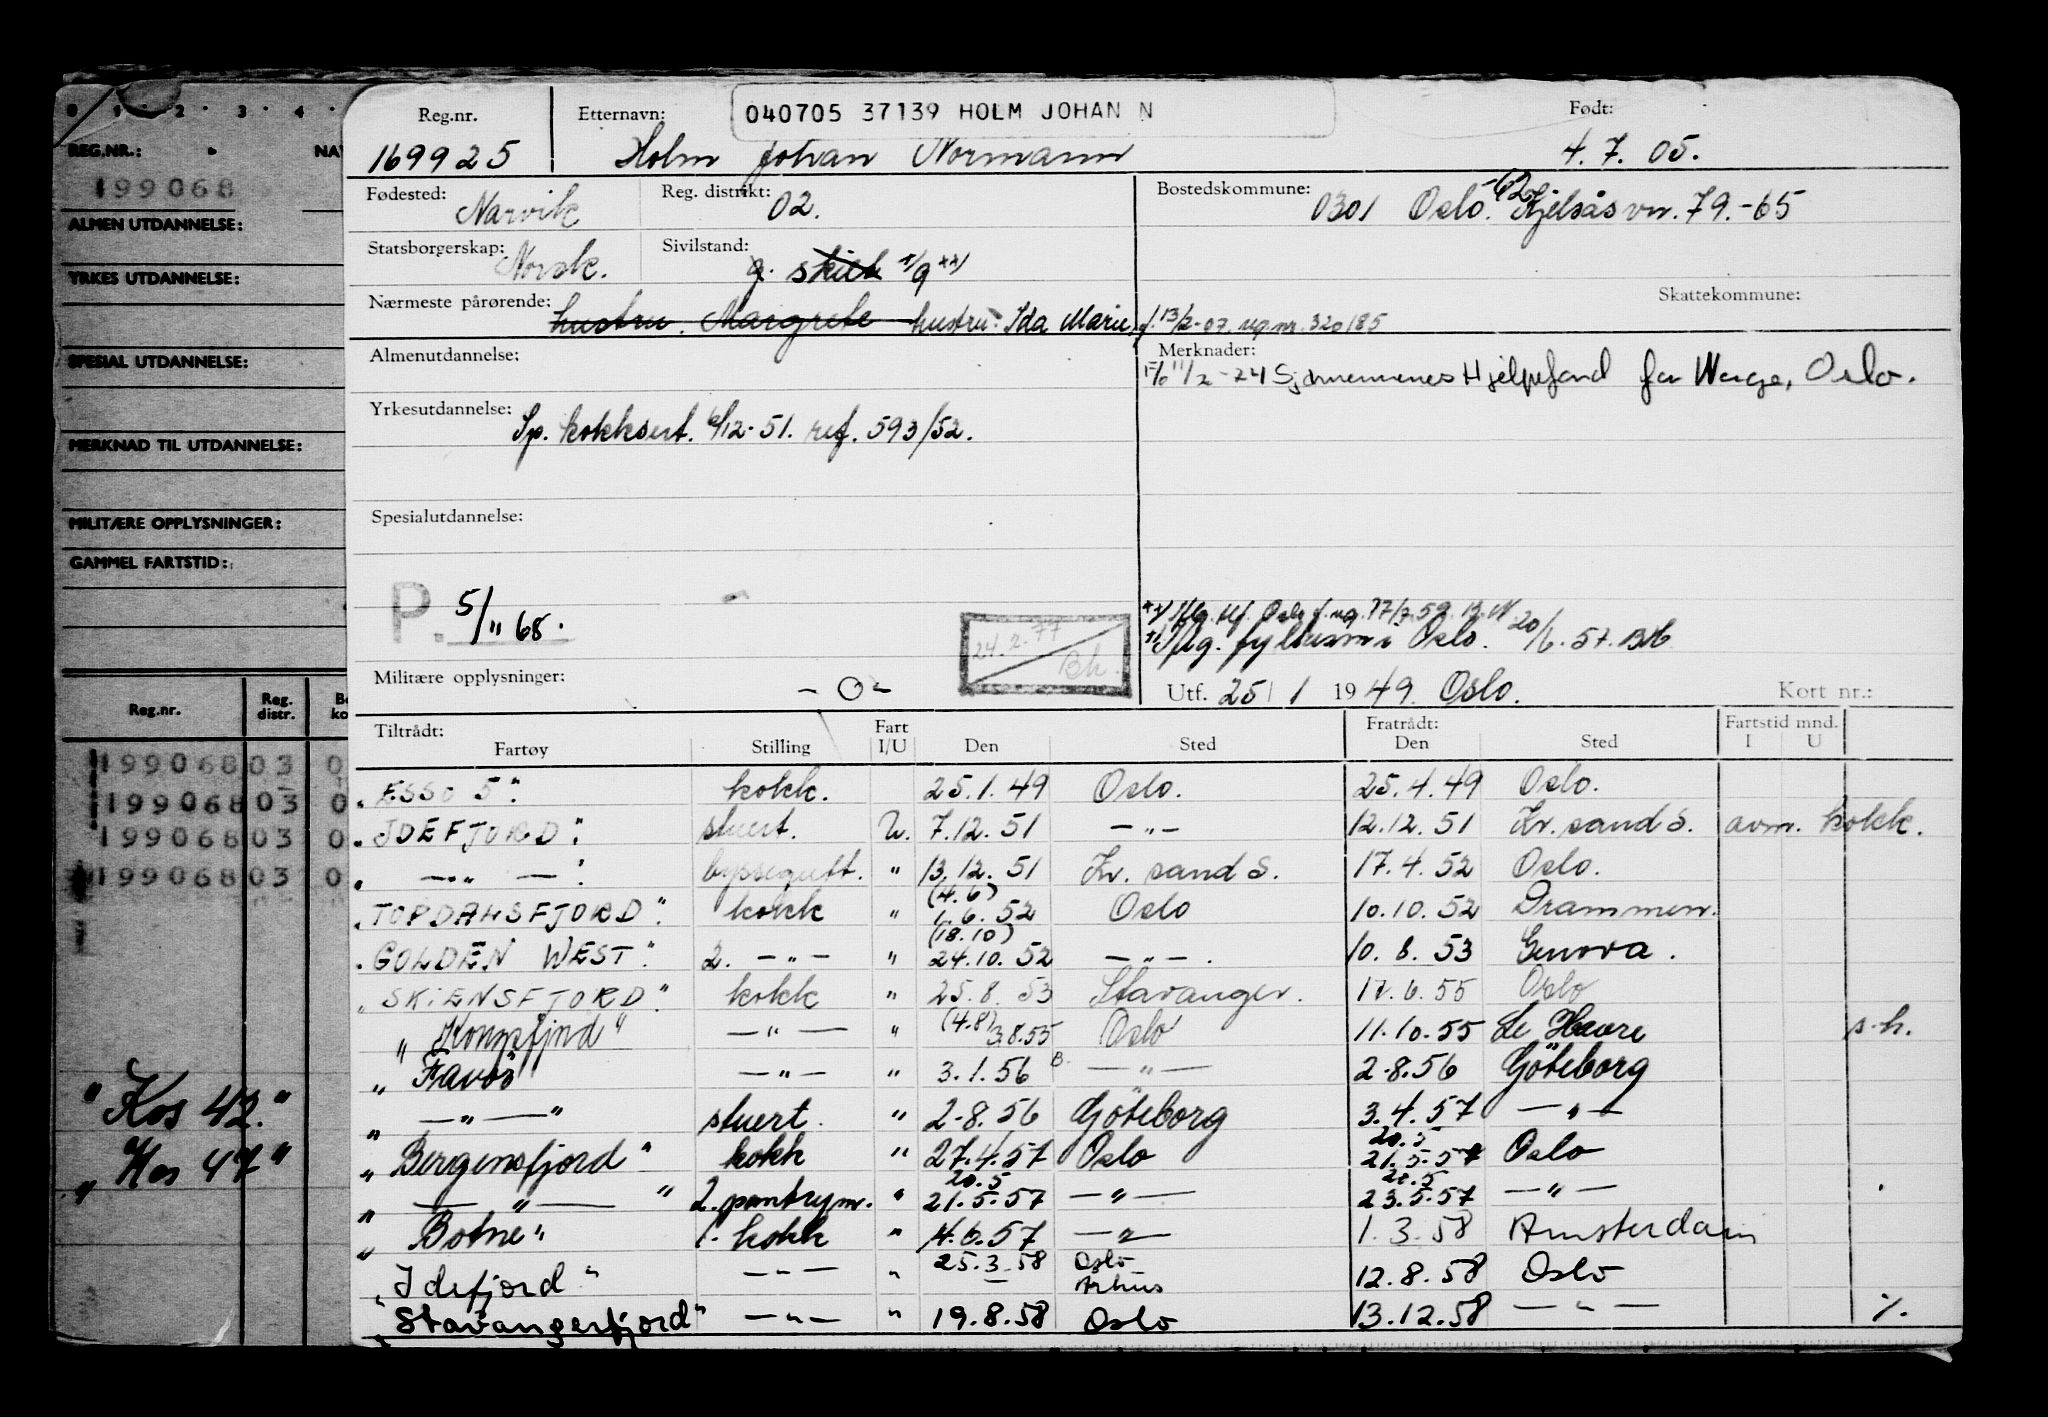 0 1 2 3 4
REG.NR.: NAV
199068
ALMEN UTDANNELSE:
YRKES UTDANNELSE:
SPESIAL UTDANNELSE:
MERKNAD TIL UTDANNELSE:
MILITÆRE OPPLYSNINGER:
GAMMEL FARTSTID:
Reg.nr. Reg. distr. Bo ko
199068 03 0
199068 03 0
199068 03 0
199068 03 0
"Kos 42."
"Hos 47"
Reg.nr. Etternavn: 040705 37139 HOLM JOHAN N Født:
169925 Holm Johan Normann 4.7.05.
Fødested: Narvik Reg. distrikt: 02. Bostedskommune: 0301 Oslo.-62 Kjelsåsvn. 79.-65
Statsborgerskap: Norsk. Sivilstand: g. skilt x/ g xx/
Nærmeste pårørende: hustru. Margrete hustru: Ida Marie, f. 13/2-07. reg.nr. 320185 Skattekommune:
Almenutdannelse: Merknader:
11/2-24 Sjømennenes Hjelpefond for Norge, Oslo.
Yrkesutdannelse: Sp. kokksert. 6/12-51. ref. 593/52.
Spesialutdannelse:
P. 5/11 68.
24.2.77 Bh.
xx/ Iflg. Oslo 17/7.59.
x/ Iflg. fylkesm. i Oslo. 20/6.57.
Militære opplysninger: - O - Utf. 25/1 1949. Oslo. Kort nr.:
Tiltrådt: Fart Fratrådt: Fartstid mnd.
Fartøy Stilling I/U Den Sted Den Sted I U
"ESSO 5". kokk. 25.1.49 Oslo. 25.4.49 Oslo.
"IDEFJORD". stuert. U. 7.12.51 -"- 12.12.51 Kr. sand S. avm. kokk.
" -"- ". byssegutt. " 13.12.51 Kr. sand S. 17.4.52 Oslo.
"TOPDALSFJORD". kokk " (4.6) 1.6.52 Oslo 10.10.52 Drammen.
"GOLDEN WEST". 2. -"- " (18.10) 24.10.52 -"-. 10.8.53 Genova.
"SKIENSFJORD". kokk " 25.8.53 Stavanger. 17.6.55 Oslo
"Kongsfjord" -"- " (4.8) 3.8.55 Oslo 11.10.55 Le Havre s.h.
"Favos -"- " 3.1.56 B. -"- 2.8.56 Göteborg
" -"- " stuert. " 2.8.56 Göteborg 3.4.57 -"-
"Bergensfjord" kokk " 27.4.57 Oslo 20.5 21.5.57 Oslo
" -"- " 2. pantrym. " 20.5 21.5.57 -"- 22.5 23.5.57 -"-
"Botne" 1. kokk " 4.6.57 -"- 1.3.58 Amsterdam
"Idefjord" -"- " 25.3.58 Oslo Arhus 12.8.58 Oslo
"Stavangerfjord" -"- " 19.8.58 Oslo 13.12.58 -"- %.